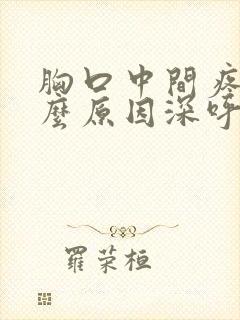 胸口中間疼
麼原因深呼
羅荣桓